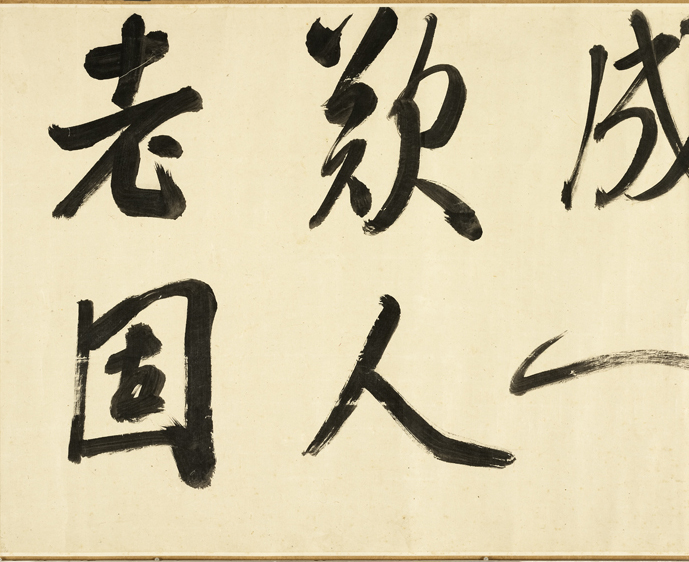 成一
歎人
老固